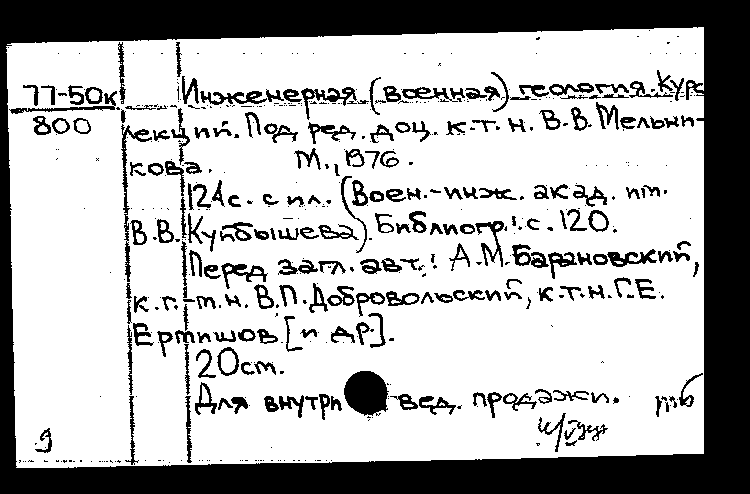 77-50к Инженерная (военная) геология. Курс
800 лекций. Под ред. доц. к.т.н. В.В. Мельни-
кова. М., 1976.
124с. с ил. (Воен.-инж. акад. им.
В.В. Куйбышева). Библиогр.: с. 120.
Перед загл. авт.: А.М. Барановский,
к.г.-м.н. В.П. Добровольский, к.т.н. Г.Е.
Ертишов [и др.].
20см.
Для внутри вед. продажи.
9